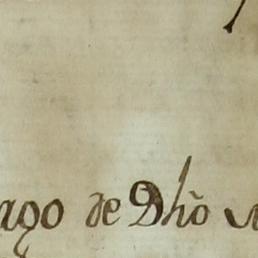 ago de Dhõ